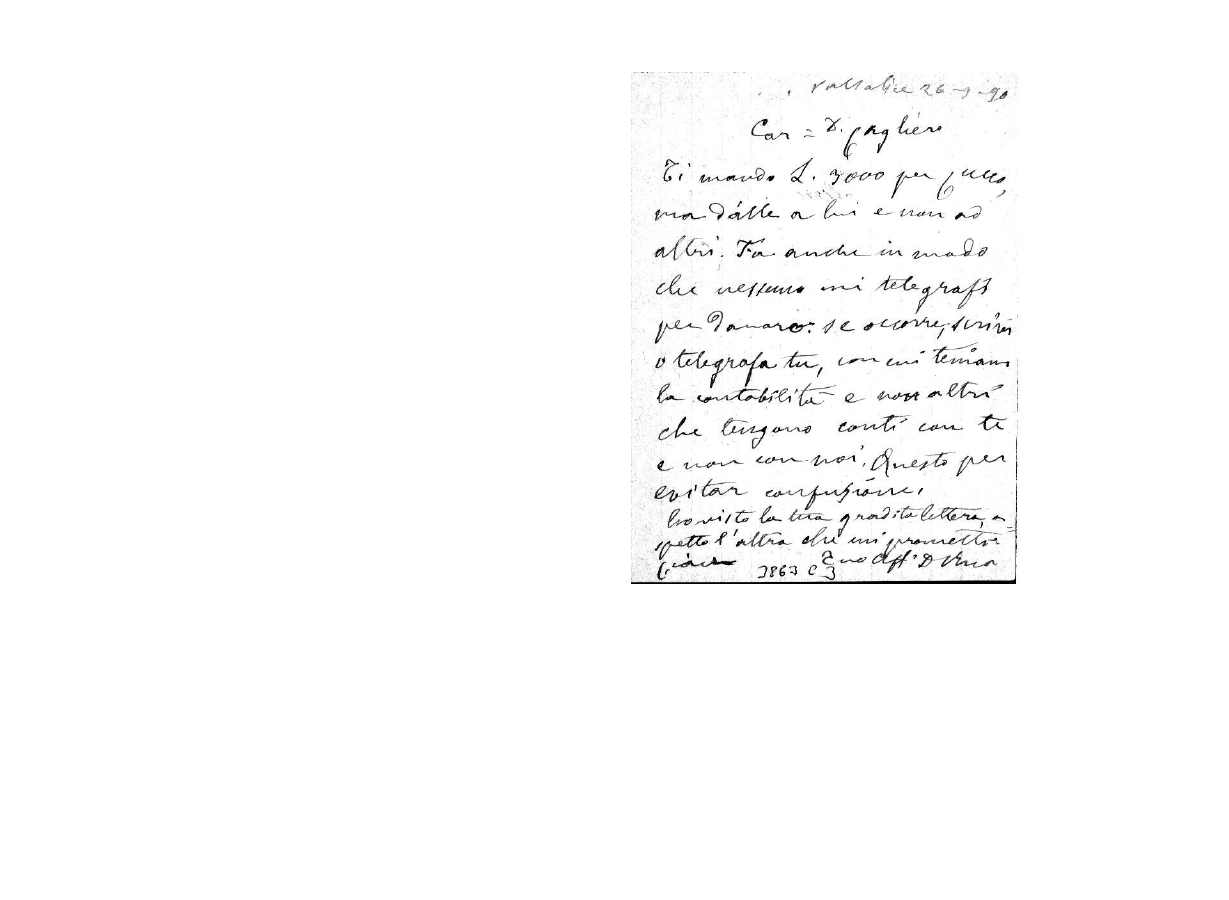 Valsalice 26-9-90
Car = D. Cagliero
Ti mando L. 3000 per Cucco,
ma dálle a lui e non ad
altri. Fa anche in modo
che nessuno mi telegrafi
per danaro: se occorre, scrivi
o telegrafa tu, con cui teniamo
la contabilità e non altri
che tengono conti con te
e non con noi. Questo per
evitar confusione.
Ho visto la tua gradita lettera, a-
spetto l'altra che mi prometti
Tuo aff. D Rua
3863 C 3